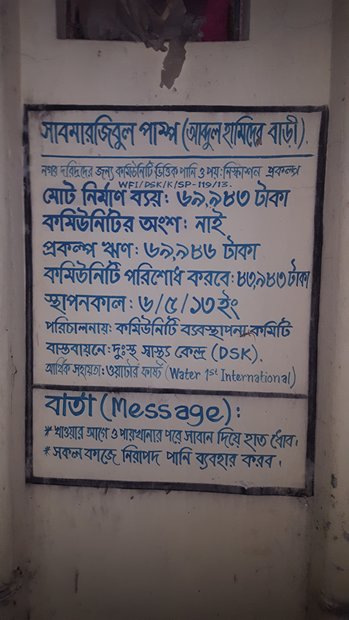 সাবমারজিবুল পাম্প (আব্দুল হামিদের বাড়ী).
নগর দরিদ্রদের জন্য কমিউনিটি ভিত্তিক পানি ও পয়: নিস্কাশন প্রকল্প
WFI/DSK/K/SP-119/13.
মোট নির্মাণ ব্যয়: ৬৯,৯৮৩ টাকা
কমিউনিটির অংশ: নাই
প্রকল্প ঋণ: ৬৯,৯৮৬ টাকা
কমিউনিটি পরিশোধ করবে: ৮৩,৯৮৩ টাকা
স্থাপনকাল: ৬/৫/১৩ ইং
পরিচালনায়: কমিউনিটি ব্যবস্থাপনা কমিটি
বাস্তবায়নে: দু:স্থ স্বাস্থ্য কেন্দ্র (DSK).
আর্থিক সহায়তা: ওয়াটার ফার্স্ট (Water 1st International)
বার্তা (Message):
* খাওয়ার আগে ও পায়খানার পরে সাবান দিয়ে হাত ধোব।
* সকল কাজে নিরাপদ পানি ব্যবহার করব।